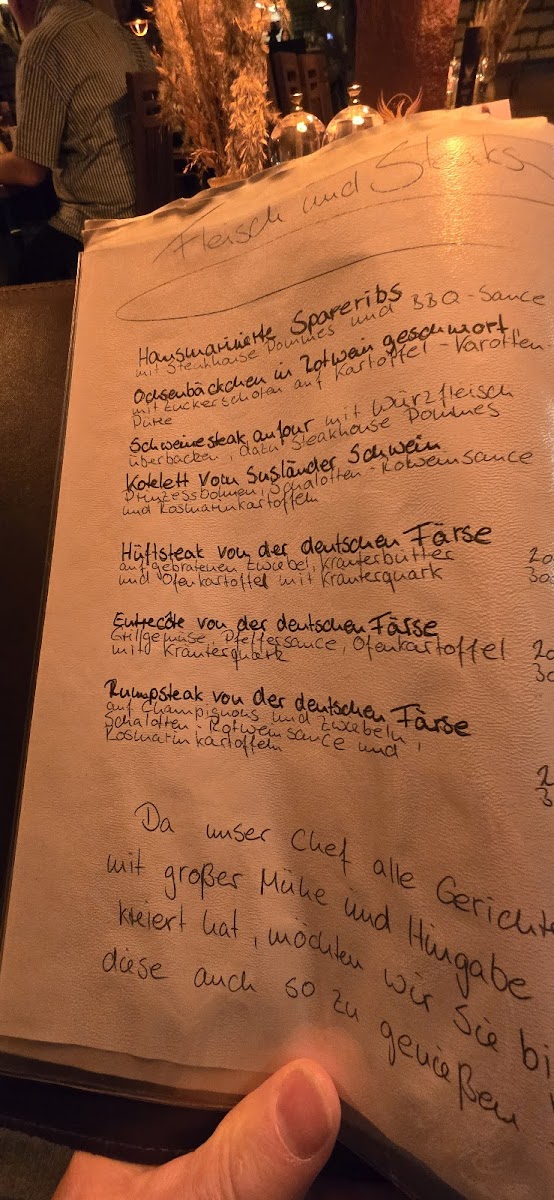 Fleisch und Steaks
Hausmarinierte Spareribs
mit Steakhouse Pommes und BBQ-Sauce
Ochsenbäckchen in Rotwein geschmort
mit Zuckerschoten auf Kartoffel-Karotten-
Püree
Schweinesteak aufour mit Würzfleisch
überbacken, dazu Steakhouse Pommes
Kotelett vom Susländer Schwein
Prinzessbohnen, Schalotten-Rotweinsauce
und Rosmarinkartoffeln
Hüftsteak von der deutschen Färse
auf gebratenen Zwiebel, Kräuterbutter 20
und Ofenkartoffel mit Kräuterquark 30
Entrecôte von der deutschen Färse
Grillgemüse, Pfeffersauce, Ofenkartoffel 20
mit Kräuterquark 30
Rumpsteak von der deutschen Färse
auf Champignons und Zwiebeln,
Schalotten-Rotweinsauce und 2
Rosmarinkartoffeln 3
Da unser Chef alle Gerichte
mit großer Mühe und Hingabe
kreiert hat, möchten wir Sie bi
diese auch so zu genießen